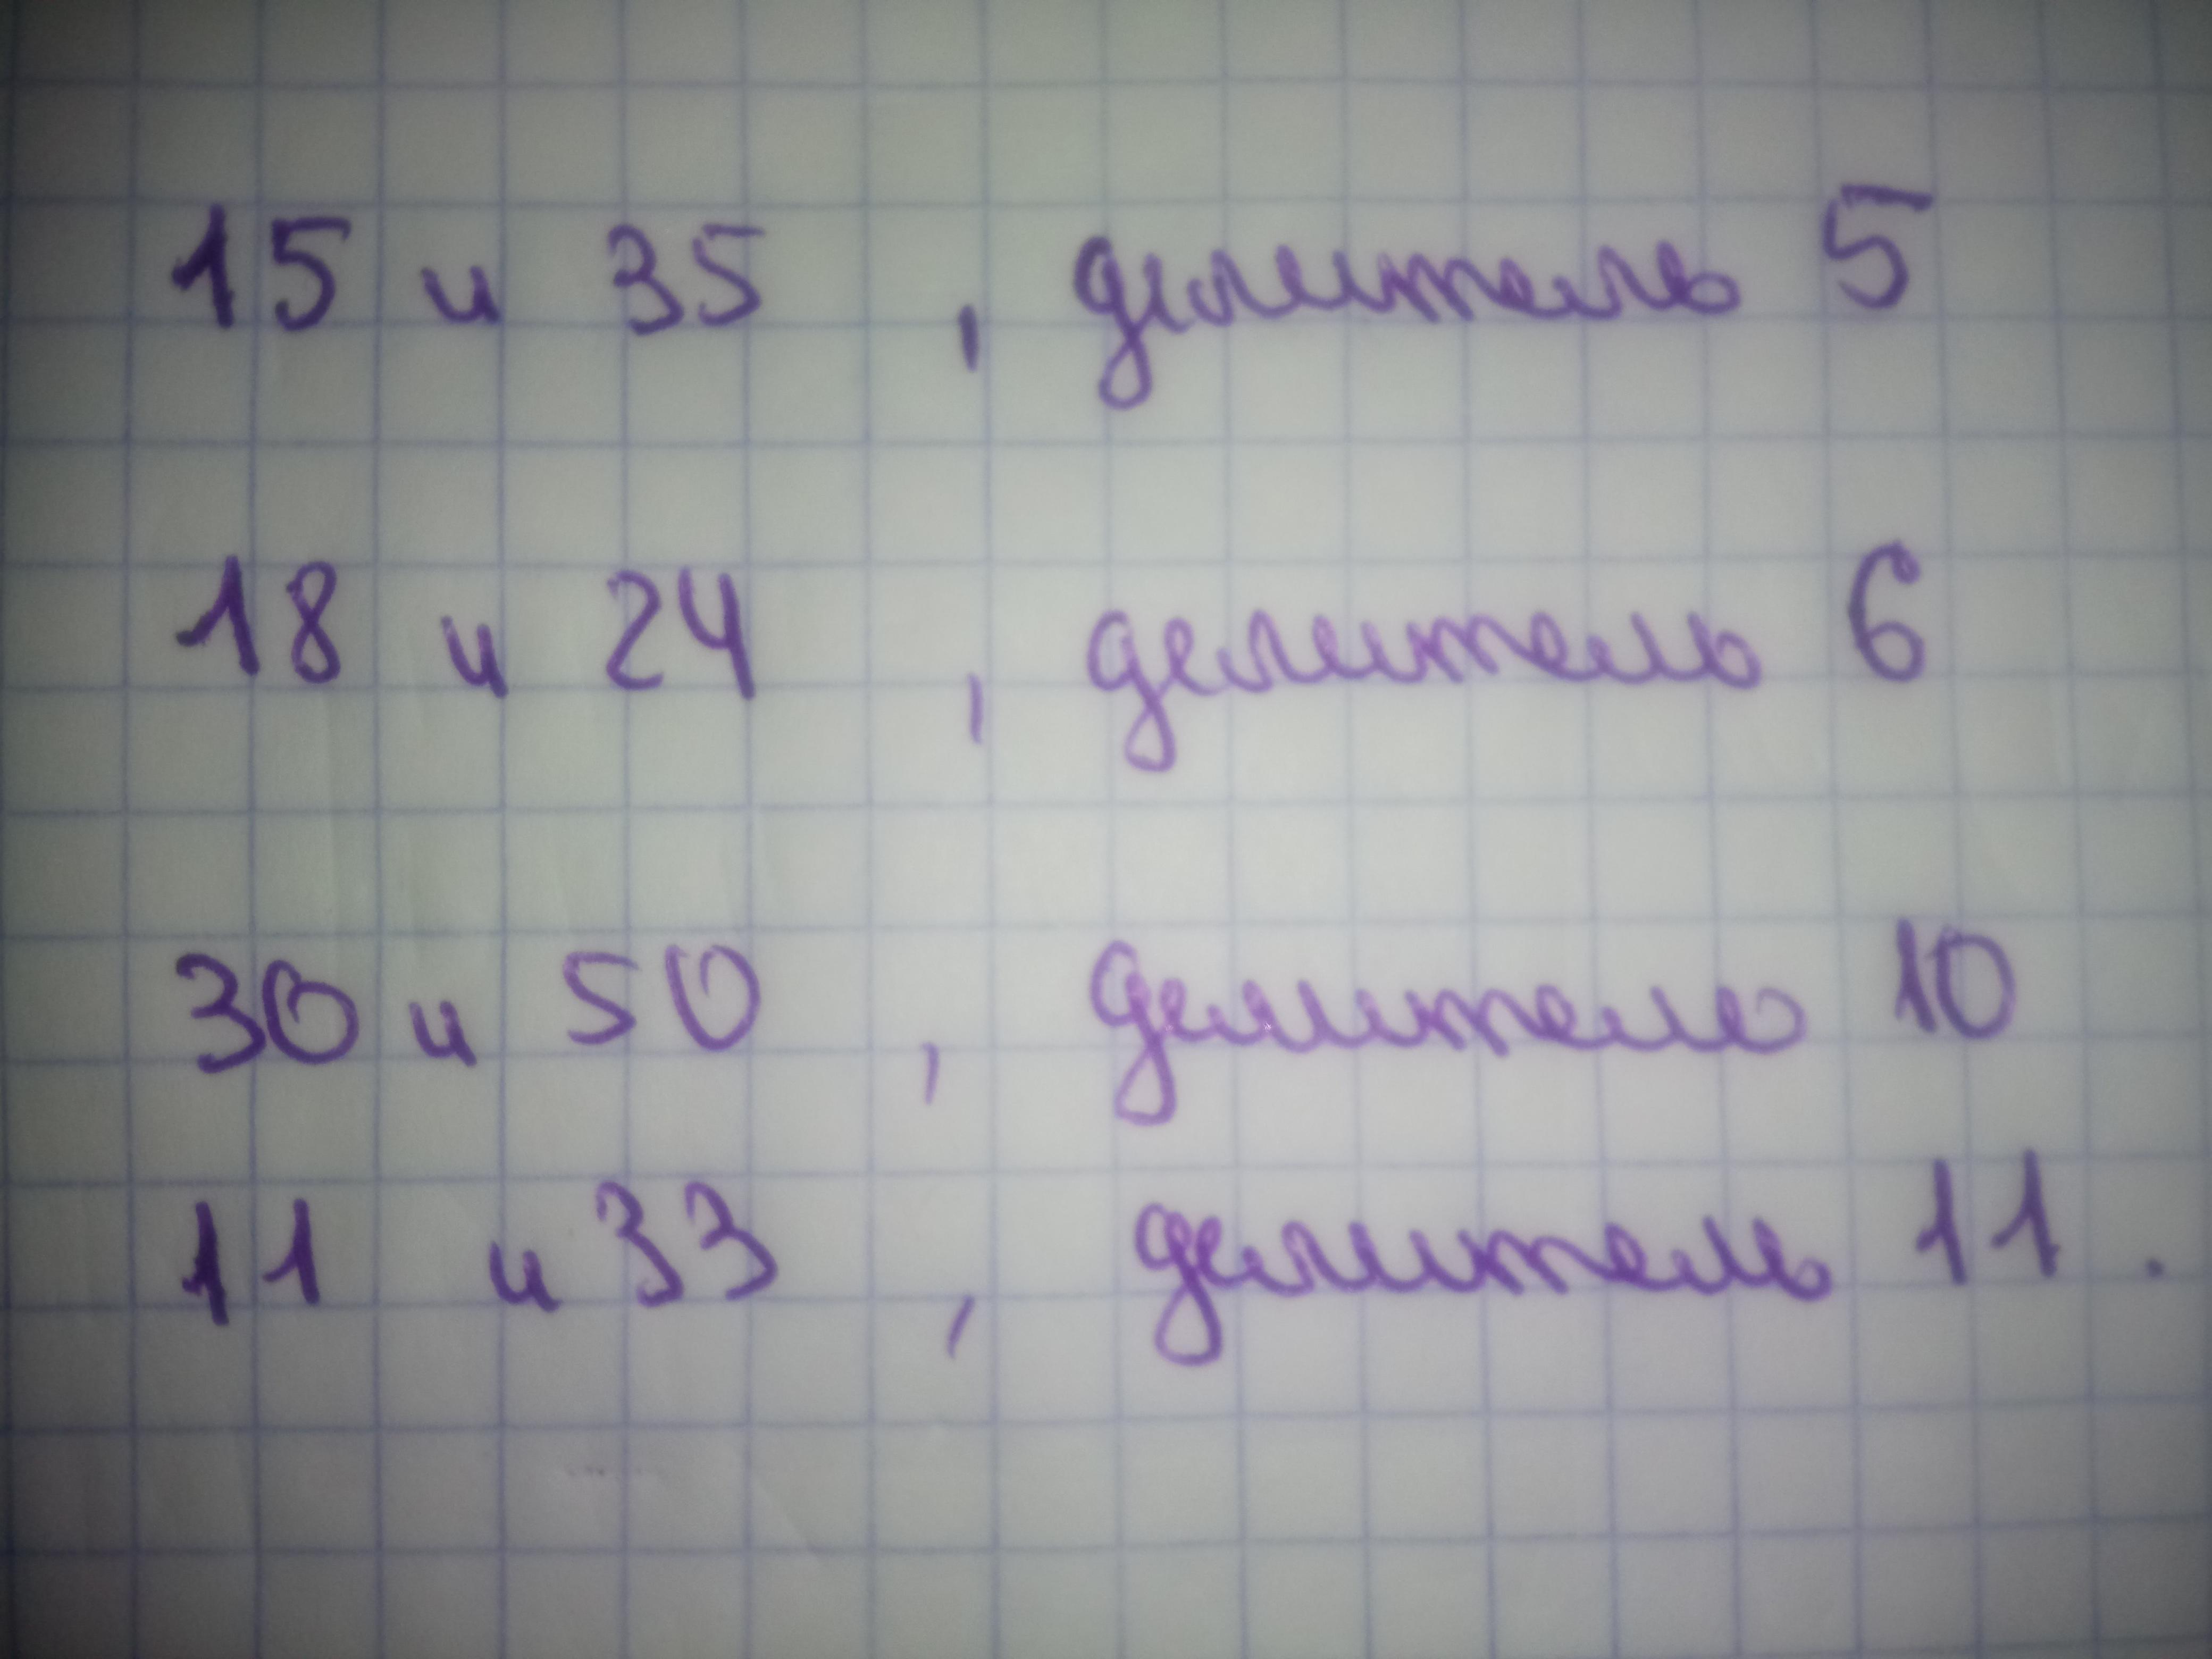 15 и 35 , делитель 5
18 и 24 , делитель 6
30 и 50 , делитель 10
11 и 33 , делитель 11 .